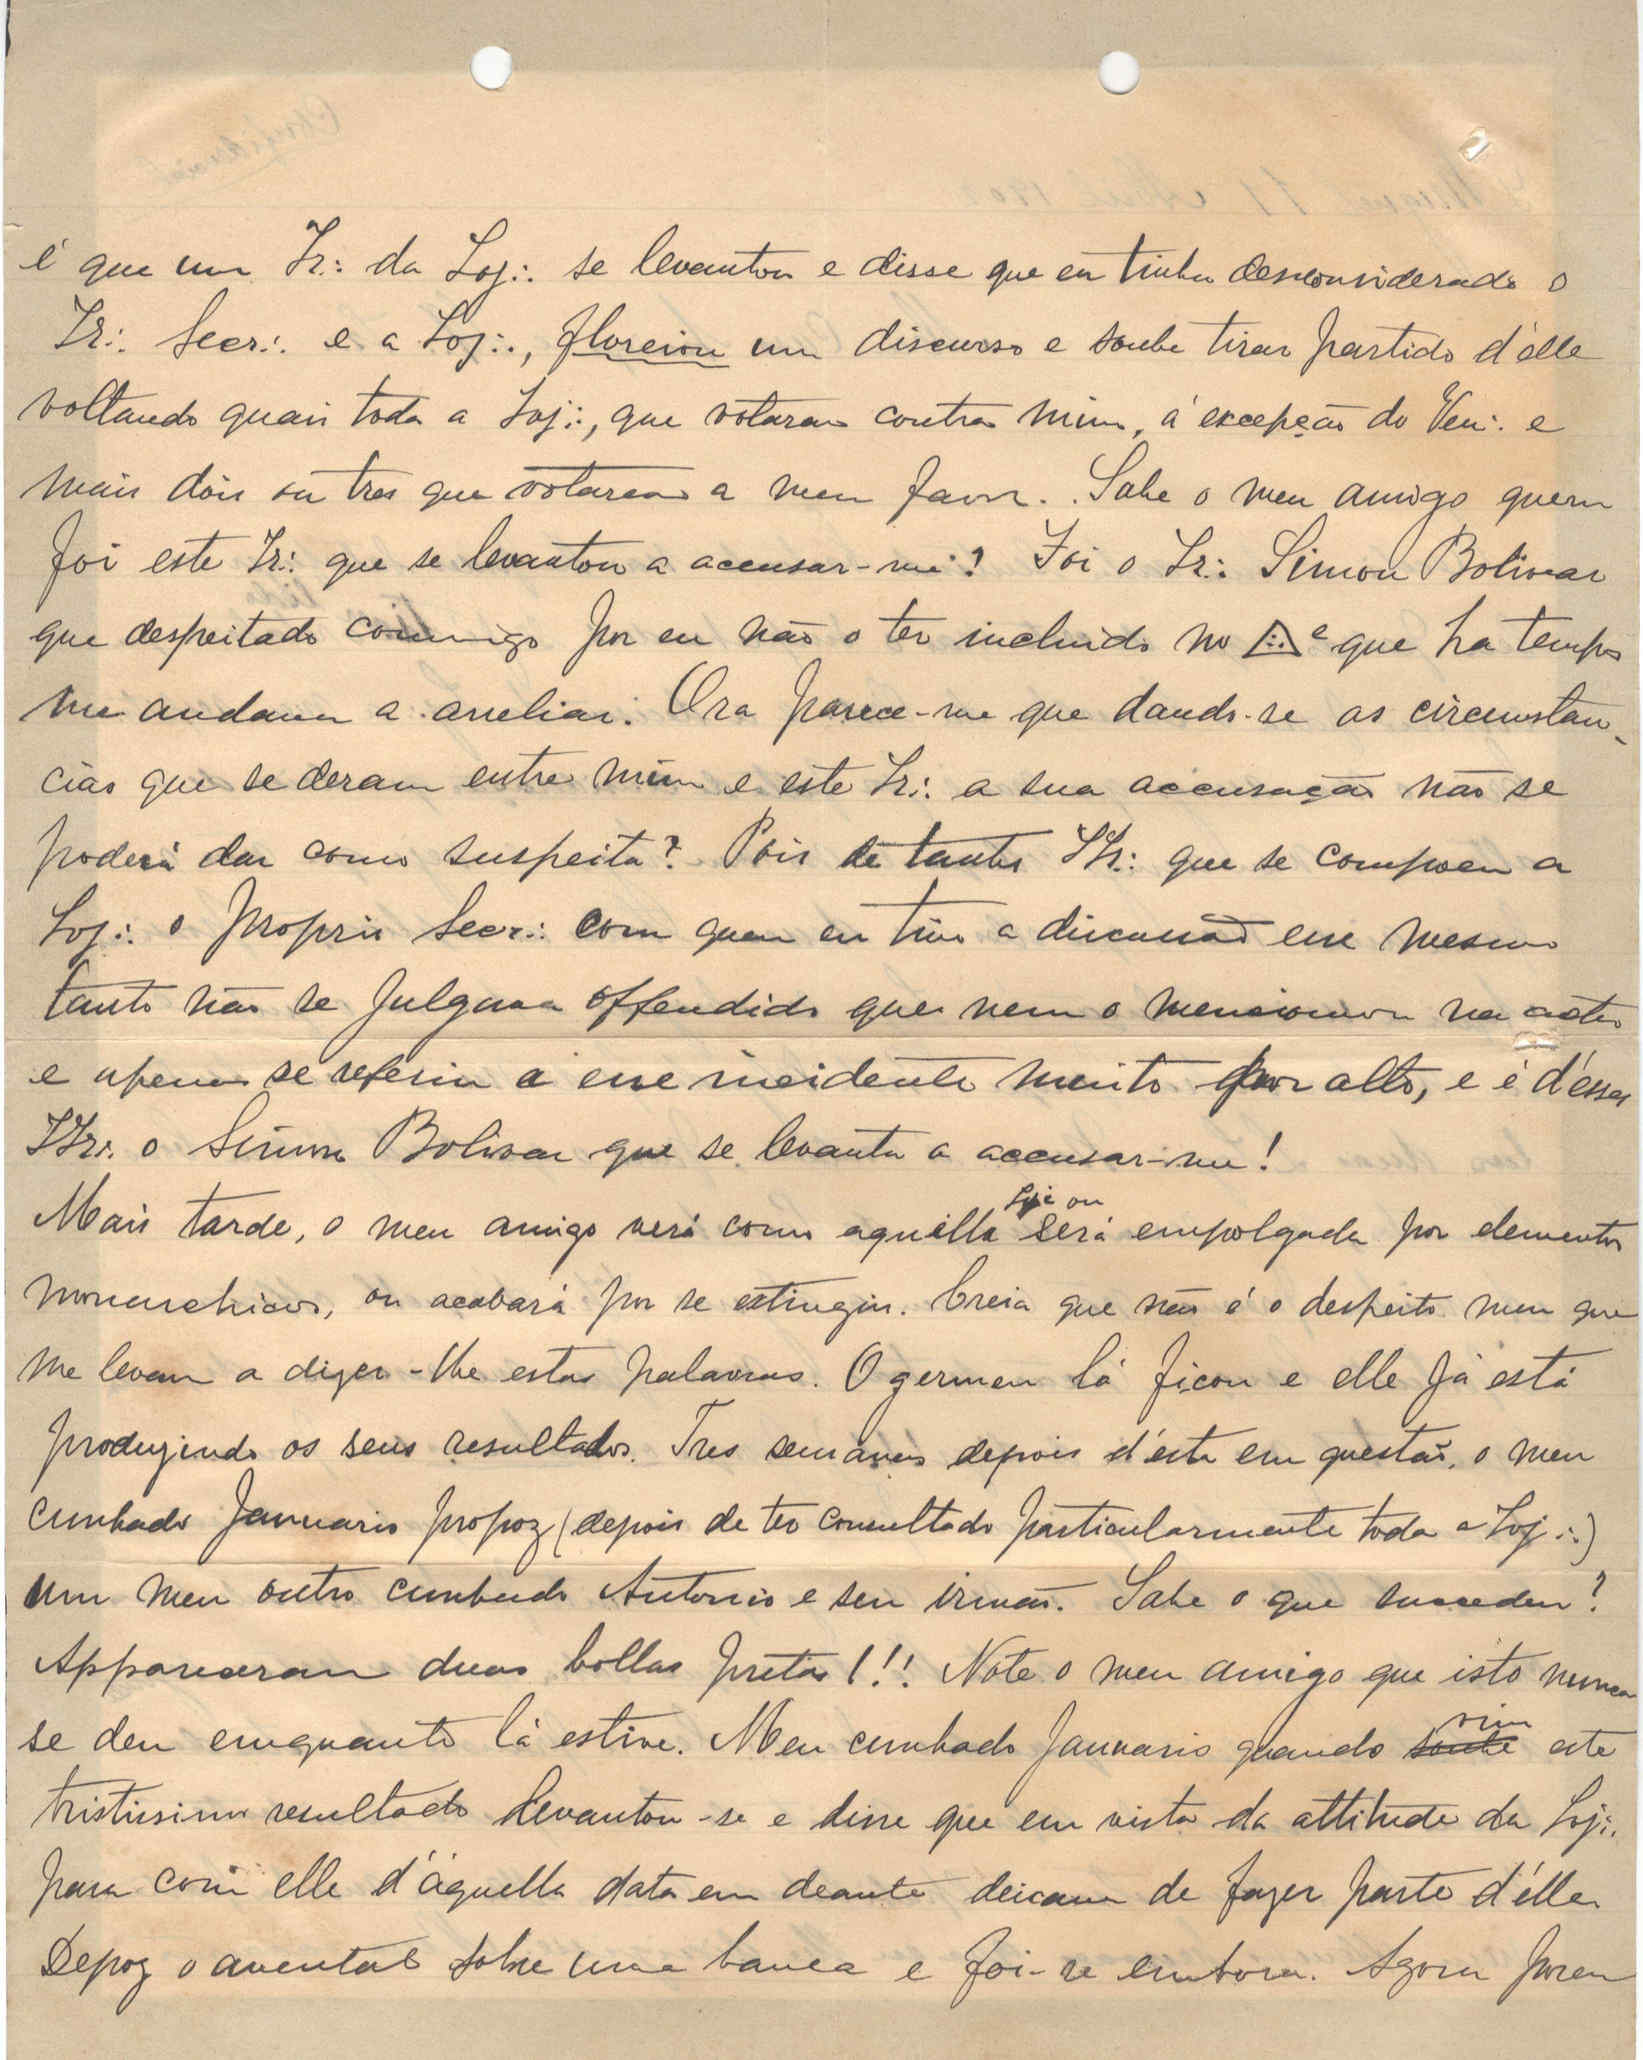 é que um Ir∴ da Loj∴ se levantou e disse que eu tinha desconsiderado o
Ir∴ Secr∴ e a Loj∴, floreiou um discurso e soube tirar partido d'élle
voltando quasi toda a Loj∴, que votaram contra mim, á excepção do Ven∴ e
mais dois ou tres que votaram a meu favor. Sabe o meu amigo quem
foi este Ir∴ que se levantou a accusar-me? Foi o Ir∴ Simon Bolivar
que despeitado commigo por eu não o ter incluido no e que ha tempos
me andava a Ora parece-me que dando-se as circumstan-
cias que se deram entre mim e este Ir∴ a sua accusação não se
poderá dar como suspeita? Pois de tantos IIr∴ que se compoem a
Loj∴ o proprio Secr∴ com quem eu tive a discussão esse mesmo
tanto não se julgava offendido que nem o mencionou na acta
e apenas se referiu a esse incidente muito por alto, e é d'esses
IIr∴ o Simon Bolivar que se levanta a accusar-me!
Mais tarde, o meu amigo verá como aquella Loj∴ ou será empolgada por elementos
monarchicos, ou acabará por se extinguir. Creia que não é o despeito meu que
me levam a dizer-lhe estas palavras. O germen lá ficou e elle já está
produzindo os seus resultados. Tres semanas depois d'esta em questão, o meu
cunhado Januario propoz (depois de ter consultado particularmente toda a Loj∴)
um meu outro cunhado Antonio e seu irmão. Sabe o que succedeu?
Appareceram duas bollas pretas!!! Note o meu amigo que isto nunca
se deu emquanto lá estive. Meu cunhado Januario quando soube viu este
tristissimo resultado levantou-se e disse que em vista da attitude da Loj∴
para com elle d'áquella data em deante deixava de fazer parte d'élla.
Depoz o avental sobre uma banca e foi-se embora. Agora porem